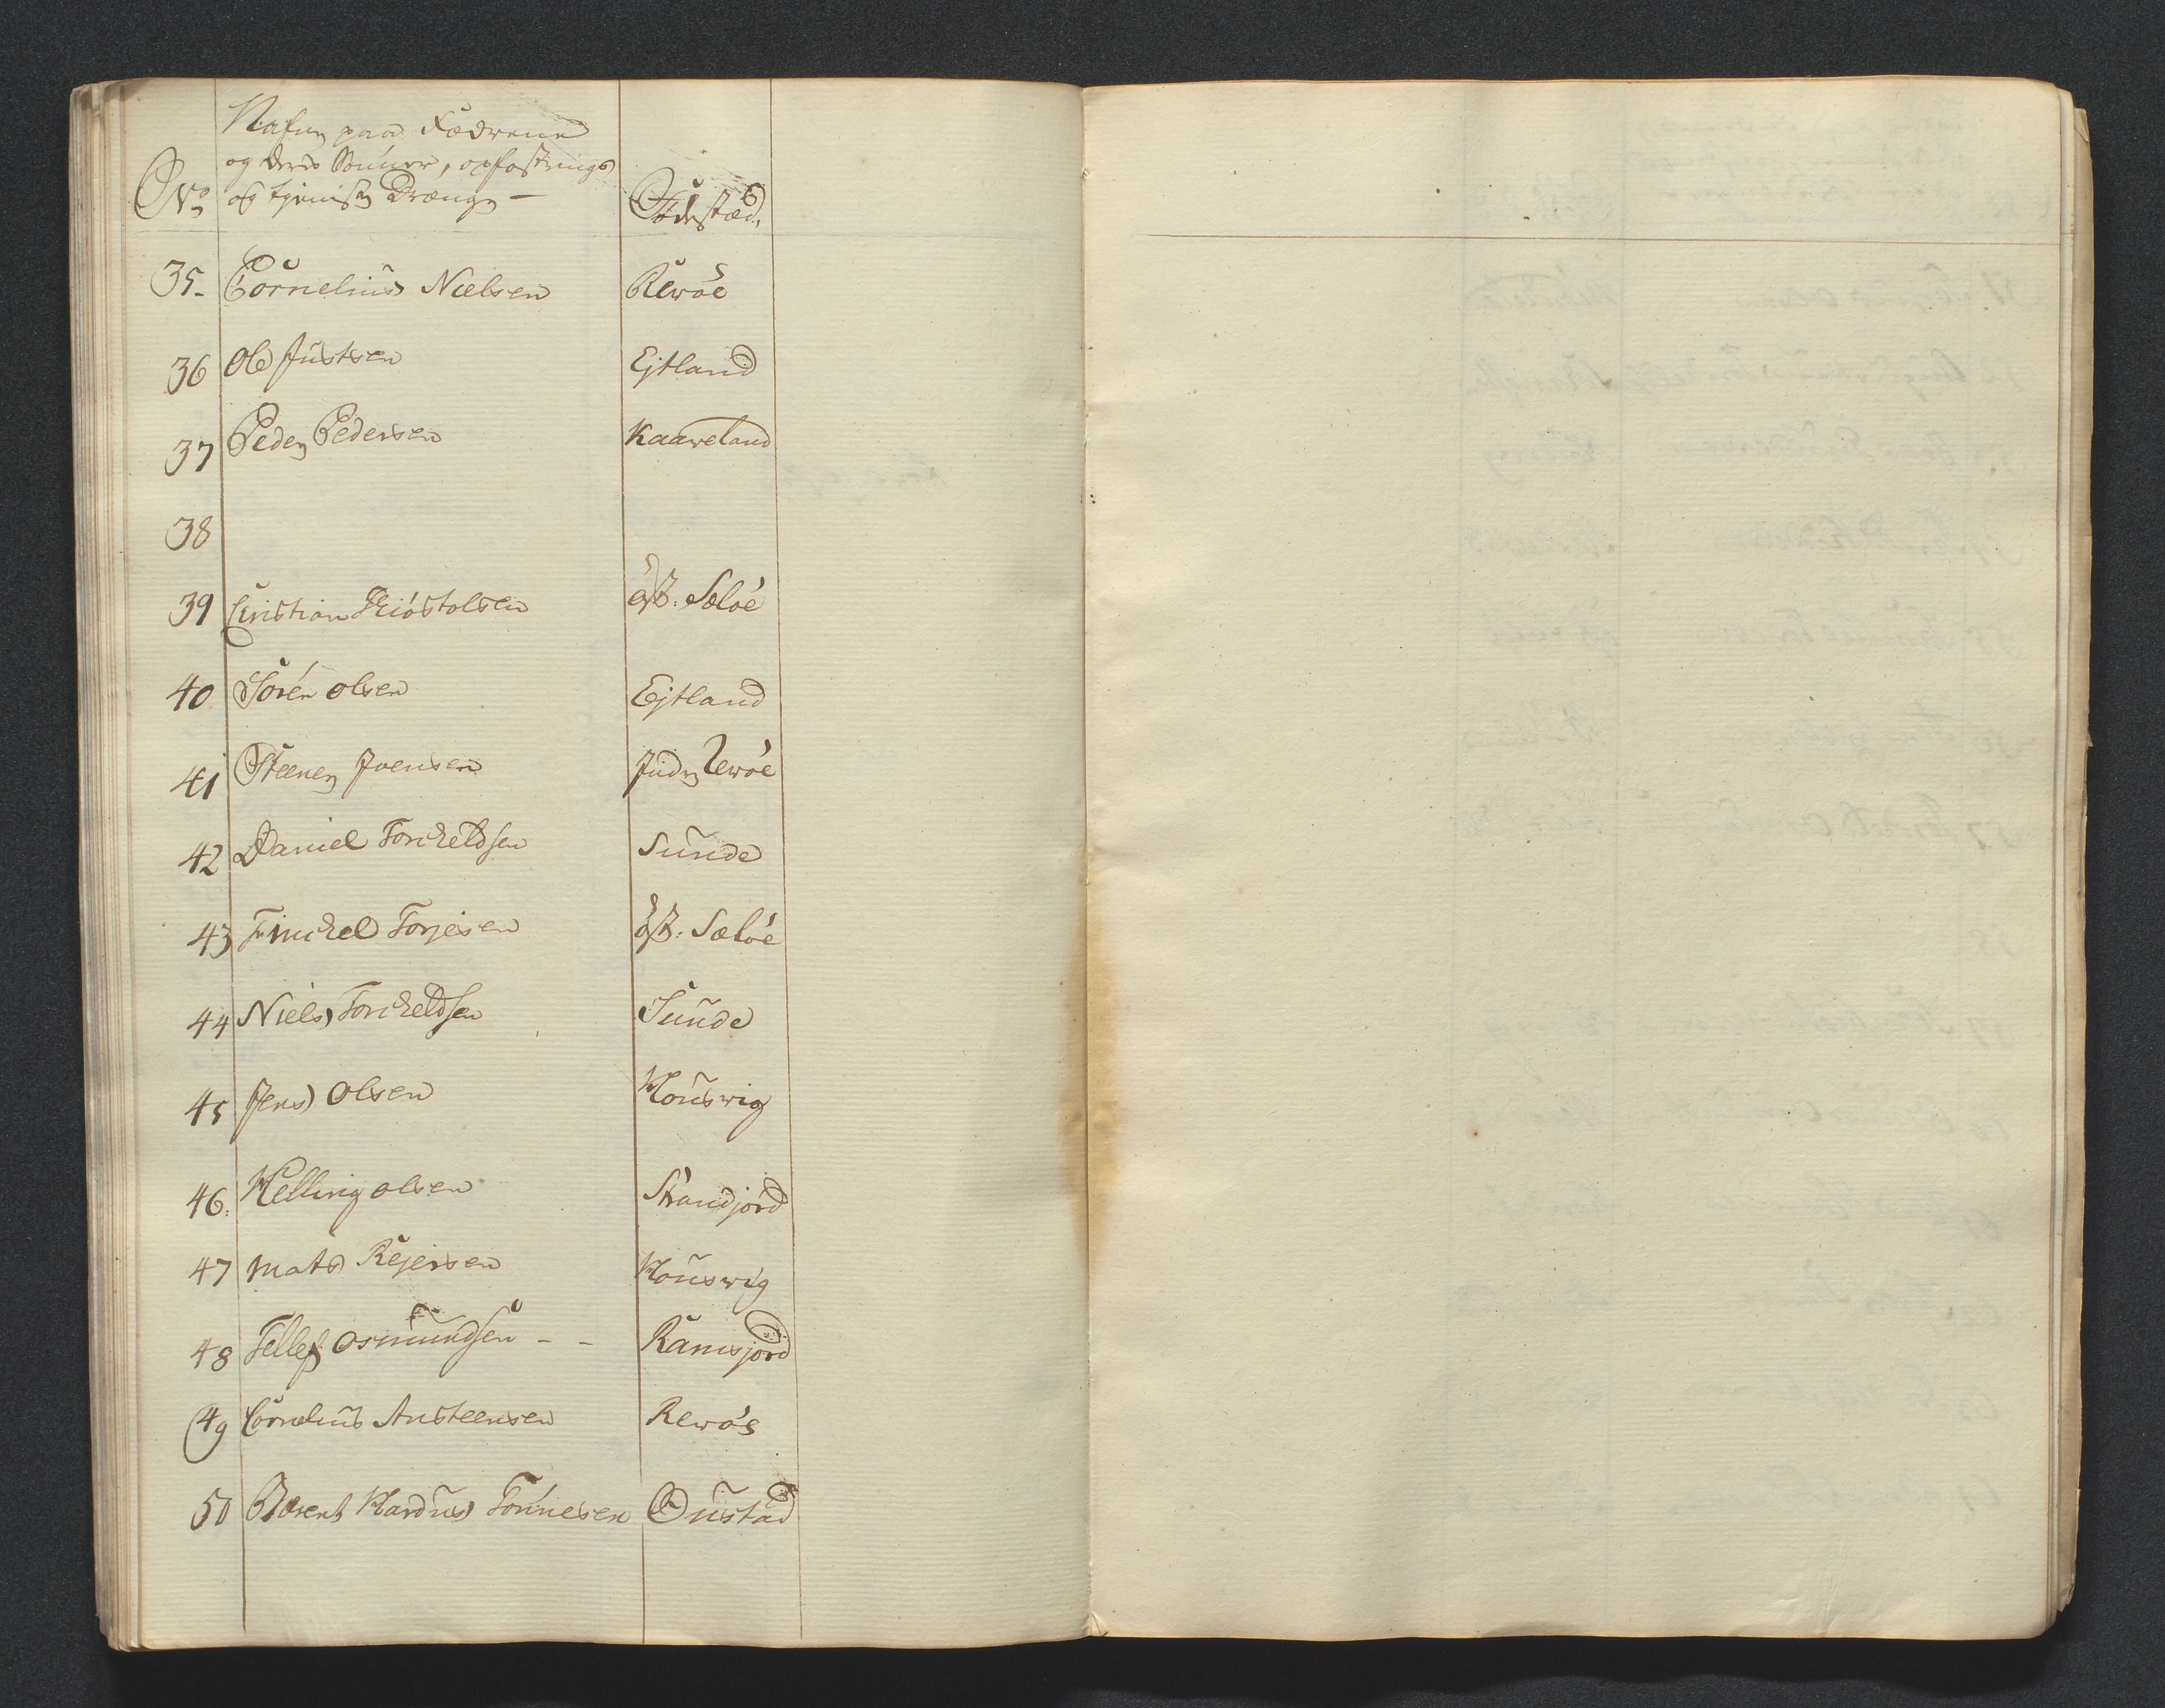 Nafn paa Fædrene
og deris Sønner, opfostrings
No og tjeniste Drænge – Fødestæd,
35- Cornelius Nielsen Rewøe
36 Ole Justsen Ejtland
37 Peder Pedersen Kaaweland
38
39 Cristian Thiøstolsen øst: Seløe
40 Sörén olsen Ejtland
41 Steener Joensen Indr Rewøe
42 Daniel Torkeldsen Sunde
43 Finckel Torjesen øst: Sæløe
44 Niels Torkeldsen Sunde
45 Jens Olsen Housvig
46: Helling olsen Strandjord
47 Mats Rejersen Houswig
48 Tellef osmundsen - - Ramsjord
49 Cornelius Austeensen Rewøe
50 Bærent Hardus Tønnesen Oustad